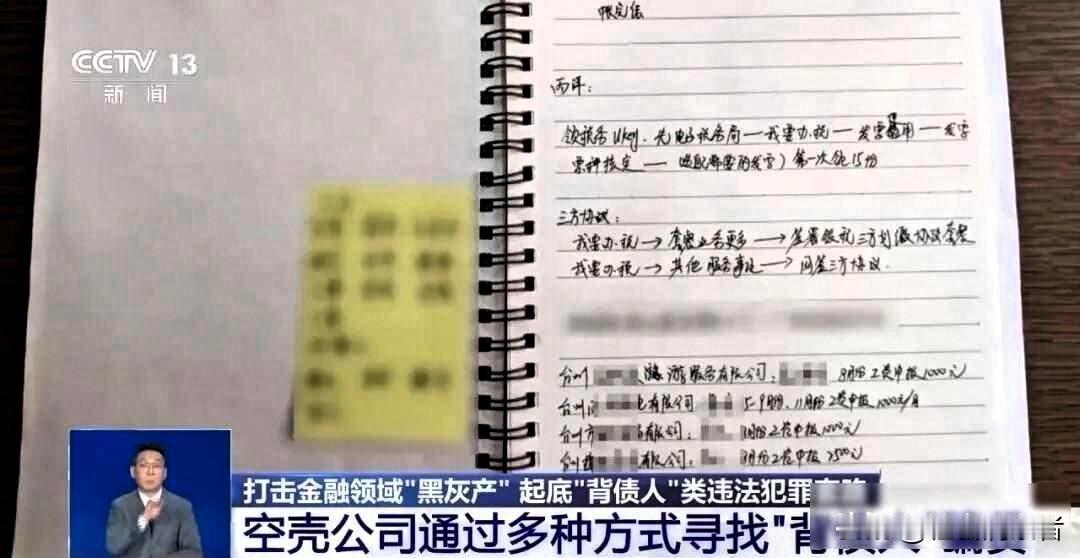 CCTV 13
新闻
西洋:
领税务Ukey、先电子税务局一我要办税一发票使用一发票
票种核定一选取需要的发票)第一次领15份
三方协议:
我要办税→套餐业务更多→签署银税三方划缴协议套餐
我要办税→其他服务事项→网签三方协议.
台州 旅游服务有限公司: 8月份工资申报1000元
台州 有限公司 5-9月份、11月份工资申报1000元/月
台州市 有限公司: 8月份工资申报1000元
台州 有限公司: 8月份工资申报2500元
打击金融领域"黑灰产" 起底"背债人"类违法犯罪
空壳公司通过多种方式寻找"背债人"
者